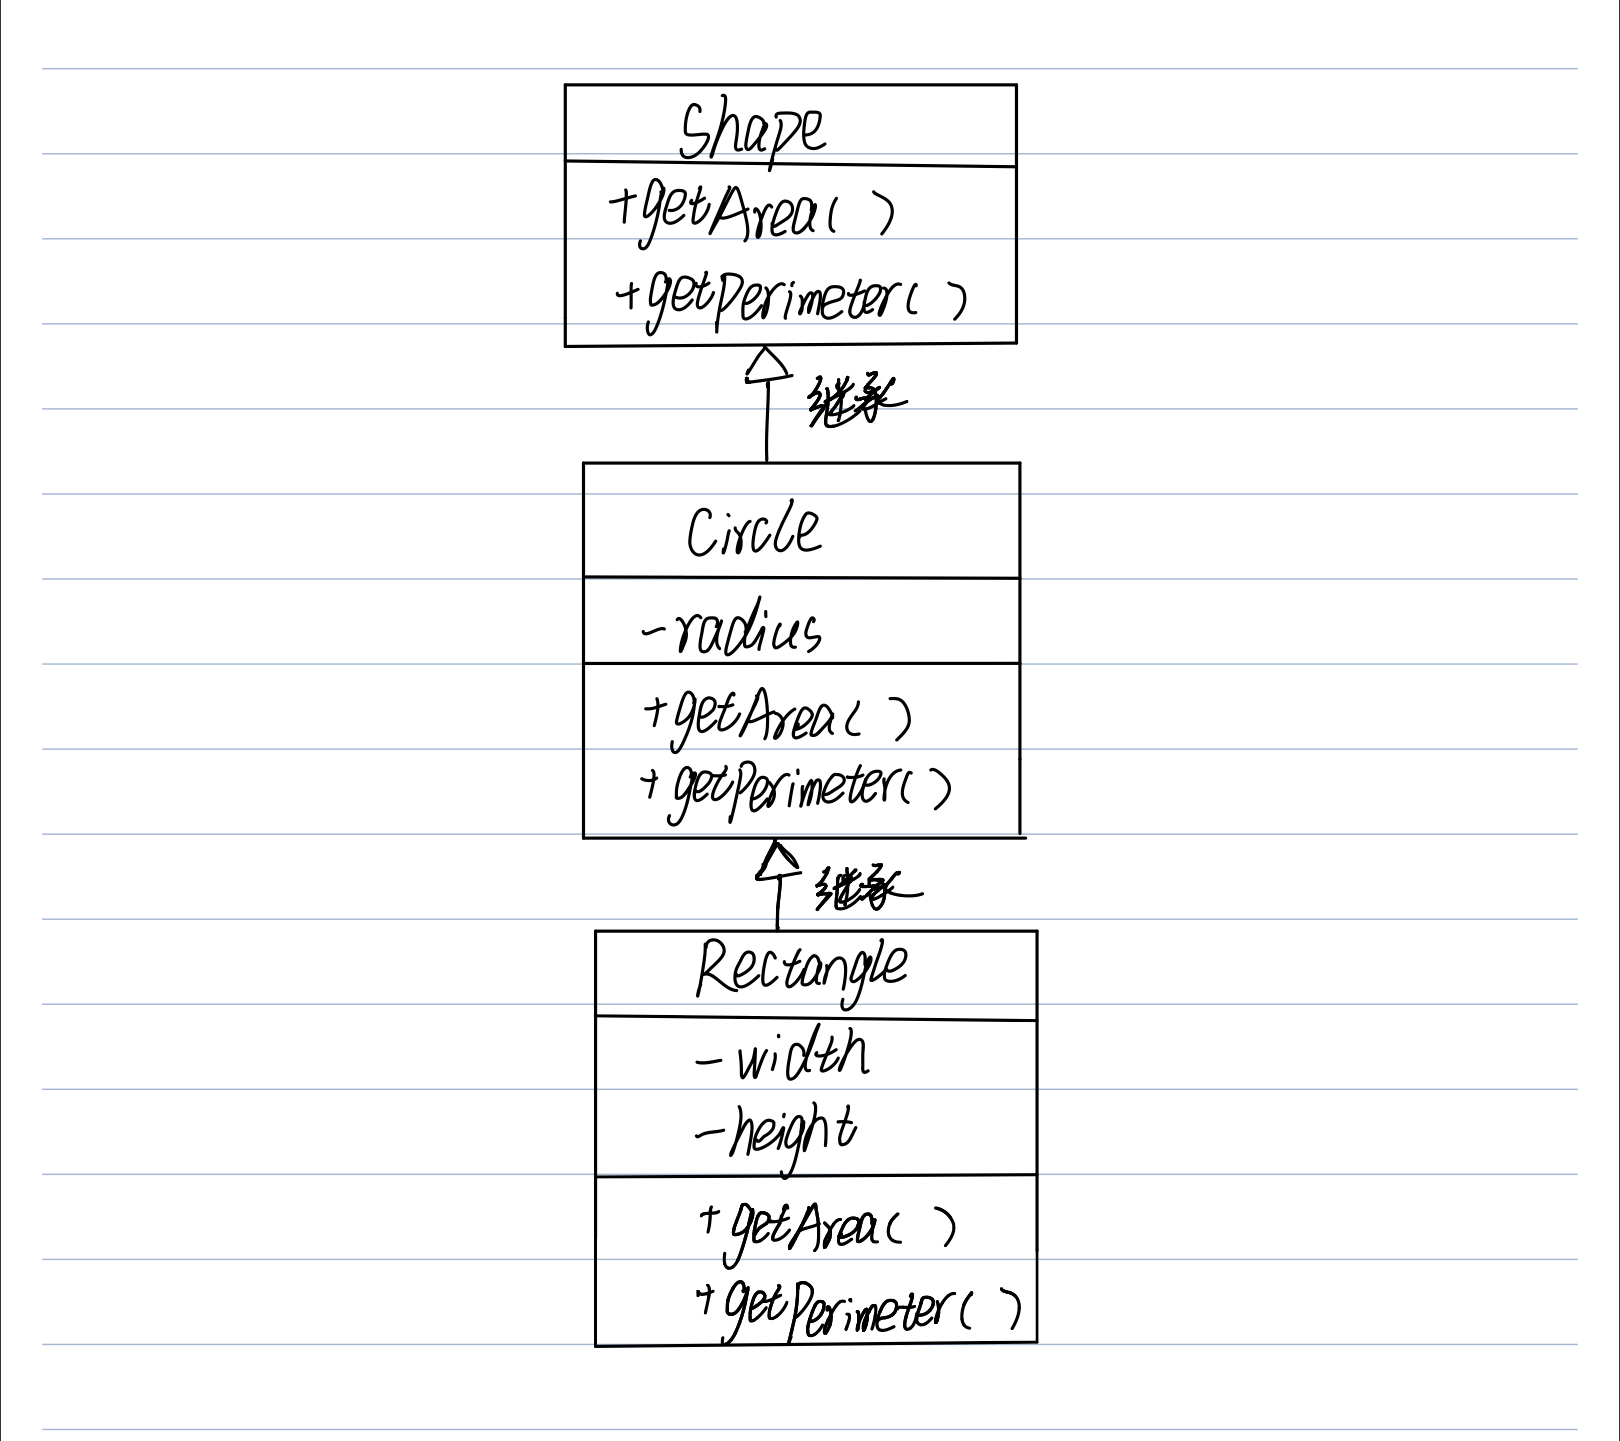 Shape
+getArea( )
+getPerimeter( )
继承
Circle
-radius
+getArea( )
+getPerimeter( )
继承
Rectangle
-width
-height
+getArea( )
+getPerimeter( )